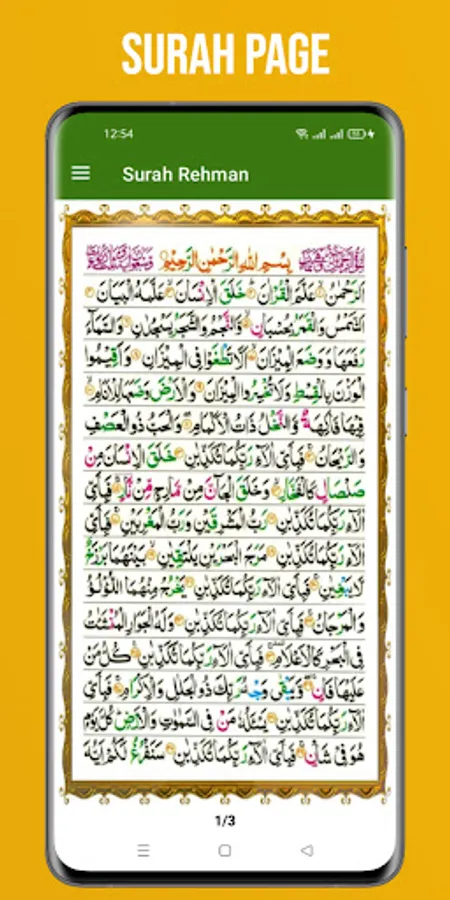 SURAH PAGE
12:54
Surah Rehman
بِسْمِ اللهِ الرَّحْمٰنِ الرَّحِيْمِ
اَلرَّحْمٰنُ عَلَّمَ الْقُرْاٰنَ خَلَقَ الْاِنْسَانَ عَلَّمَهُ الْبَيَانَ
اَلشَّمْسُ وَالْقَمَرُ بِحُسْبَانٍ وَّالنَّجْمُ وَالشَّجَرُ يَسْجُدٰنِ وَالسَّمَآءَ
رَفَعَهَا وَوَضَعَ الْمِيْزَانَ اَلَّا تَطْغَوْا فِى الْمِيْزَانِ وَاَقِيْمُوا
الْوَزْنَ بِالْقِسْطِ وَلَا تُخْسِرُوا الْمِيْزَانَ وَالْاَرْضَ وَضَعَهَا لِلْاَنَامِ
فِيْهَا فَاكِهَةٌ وَّالنَّخْلُ ذَاتُ الْاَكْمَامِ وَالْحَبُّ ذُو الْعَصْفِ
وَالرَّيْحَانُ فَبِاَىِّ اٰلَآءِ رَبِّكُمَا تُكَذِّبٰنِ خَلَقَ الْاِنْسَانَ مِنْ
صَلْصَالٍ كَالْفَخَّارِ وَخَلَقَ الْجَآنَّ مِنْ مَّارِجٍ مِّنْ نَّارٍ فَبِاَىِّ
اٰلَآءِ رَبِّكُمَا تُكَذِّبٰنِ رَبُّ الْمَشْرِقَيْنِ وَرَبُّ الْمَغْرِبَيْنِ فَبِاَىِّ
اٰلَآءِ رَبِّكُمَا تُكَذِّبٰنِ مَرَجَ الْبَحْرَيْنِ يَلْتَقِيٰنِ بَيْنَهُمَا بَرْزَخٌ
لَّا يَبْغِيٰنِ فَبِاَىِّ اٰلَآءِ رَبِّكُمَا تُكَذِّبٰنِ يَخْرُجُ مِنْهُمَا اللُّؤْلُؤُ
وَالْمَرْجَانُ فَبِاَىِّ اٰلَآءِ رَبِّكُمَا تُكَذِّبٰنِ وَلَهُ الْجَوَارِ الْمُنْشَئٰتُ
فِى الْبَحْرِ كَالْاَعْلَامِ فَبِاَىِّ اٰلَآءِ رَبِّكُمَا تُكَذِّبٰنِ كُلُّ مَنْ
عَلَيْهَا فَانٍ وَّيَبْقٰى وَجْهُ رَبِّكَ ذُو الْجَلٰلِ وَالْاِكْرَامِ فَبِاَىِّ
اٰلَآءِ رَبِّكُمَا تُكَذِّبٰنِ يَسْئَلُهٗ مَنْ فِى السَّمٰوٰتِ وَالْاَرْضِ كُلَّ يَوْمٍ
هُوَ فِىْ شَاْنٍ فَبِاَىِّ اٰلَآءِ رَبِّكُمَا تُكَذِّبٰنِ سَنَفْرُغُ لَكُمْ اَيُّهَ
1/3